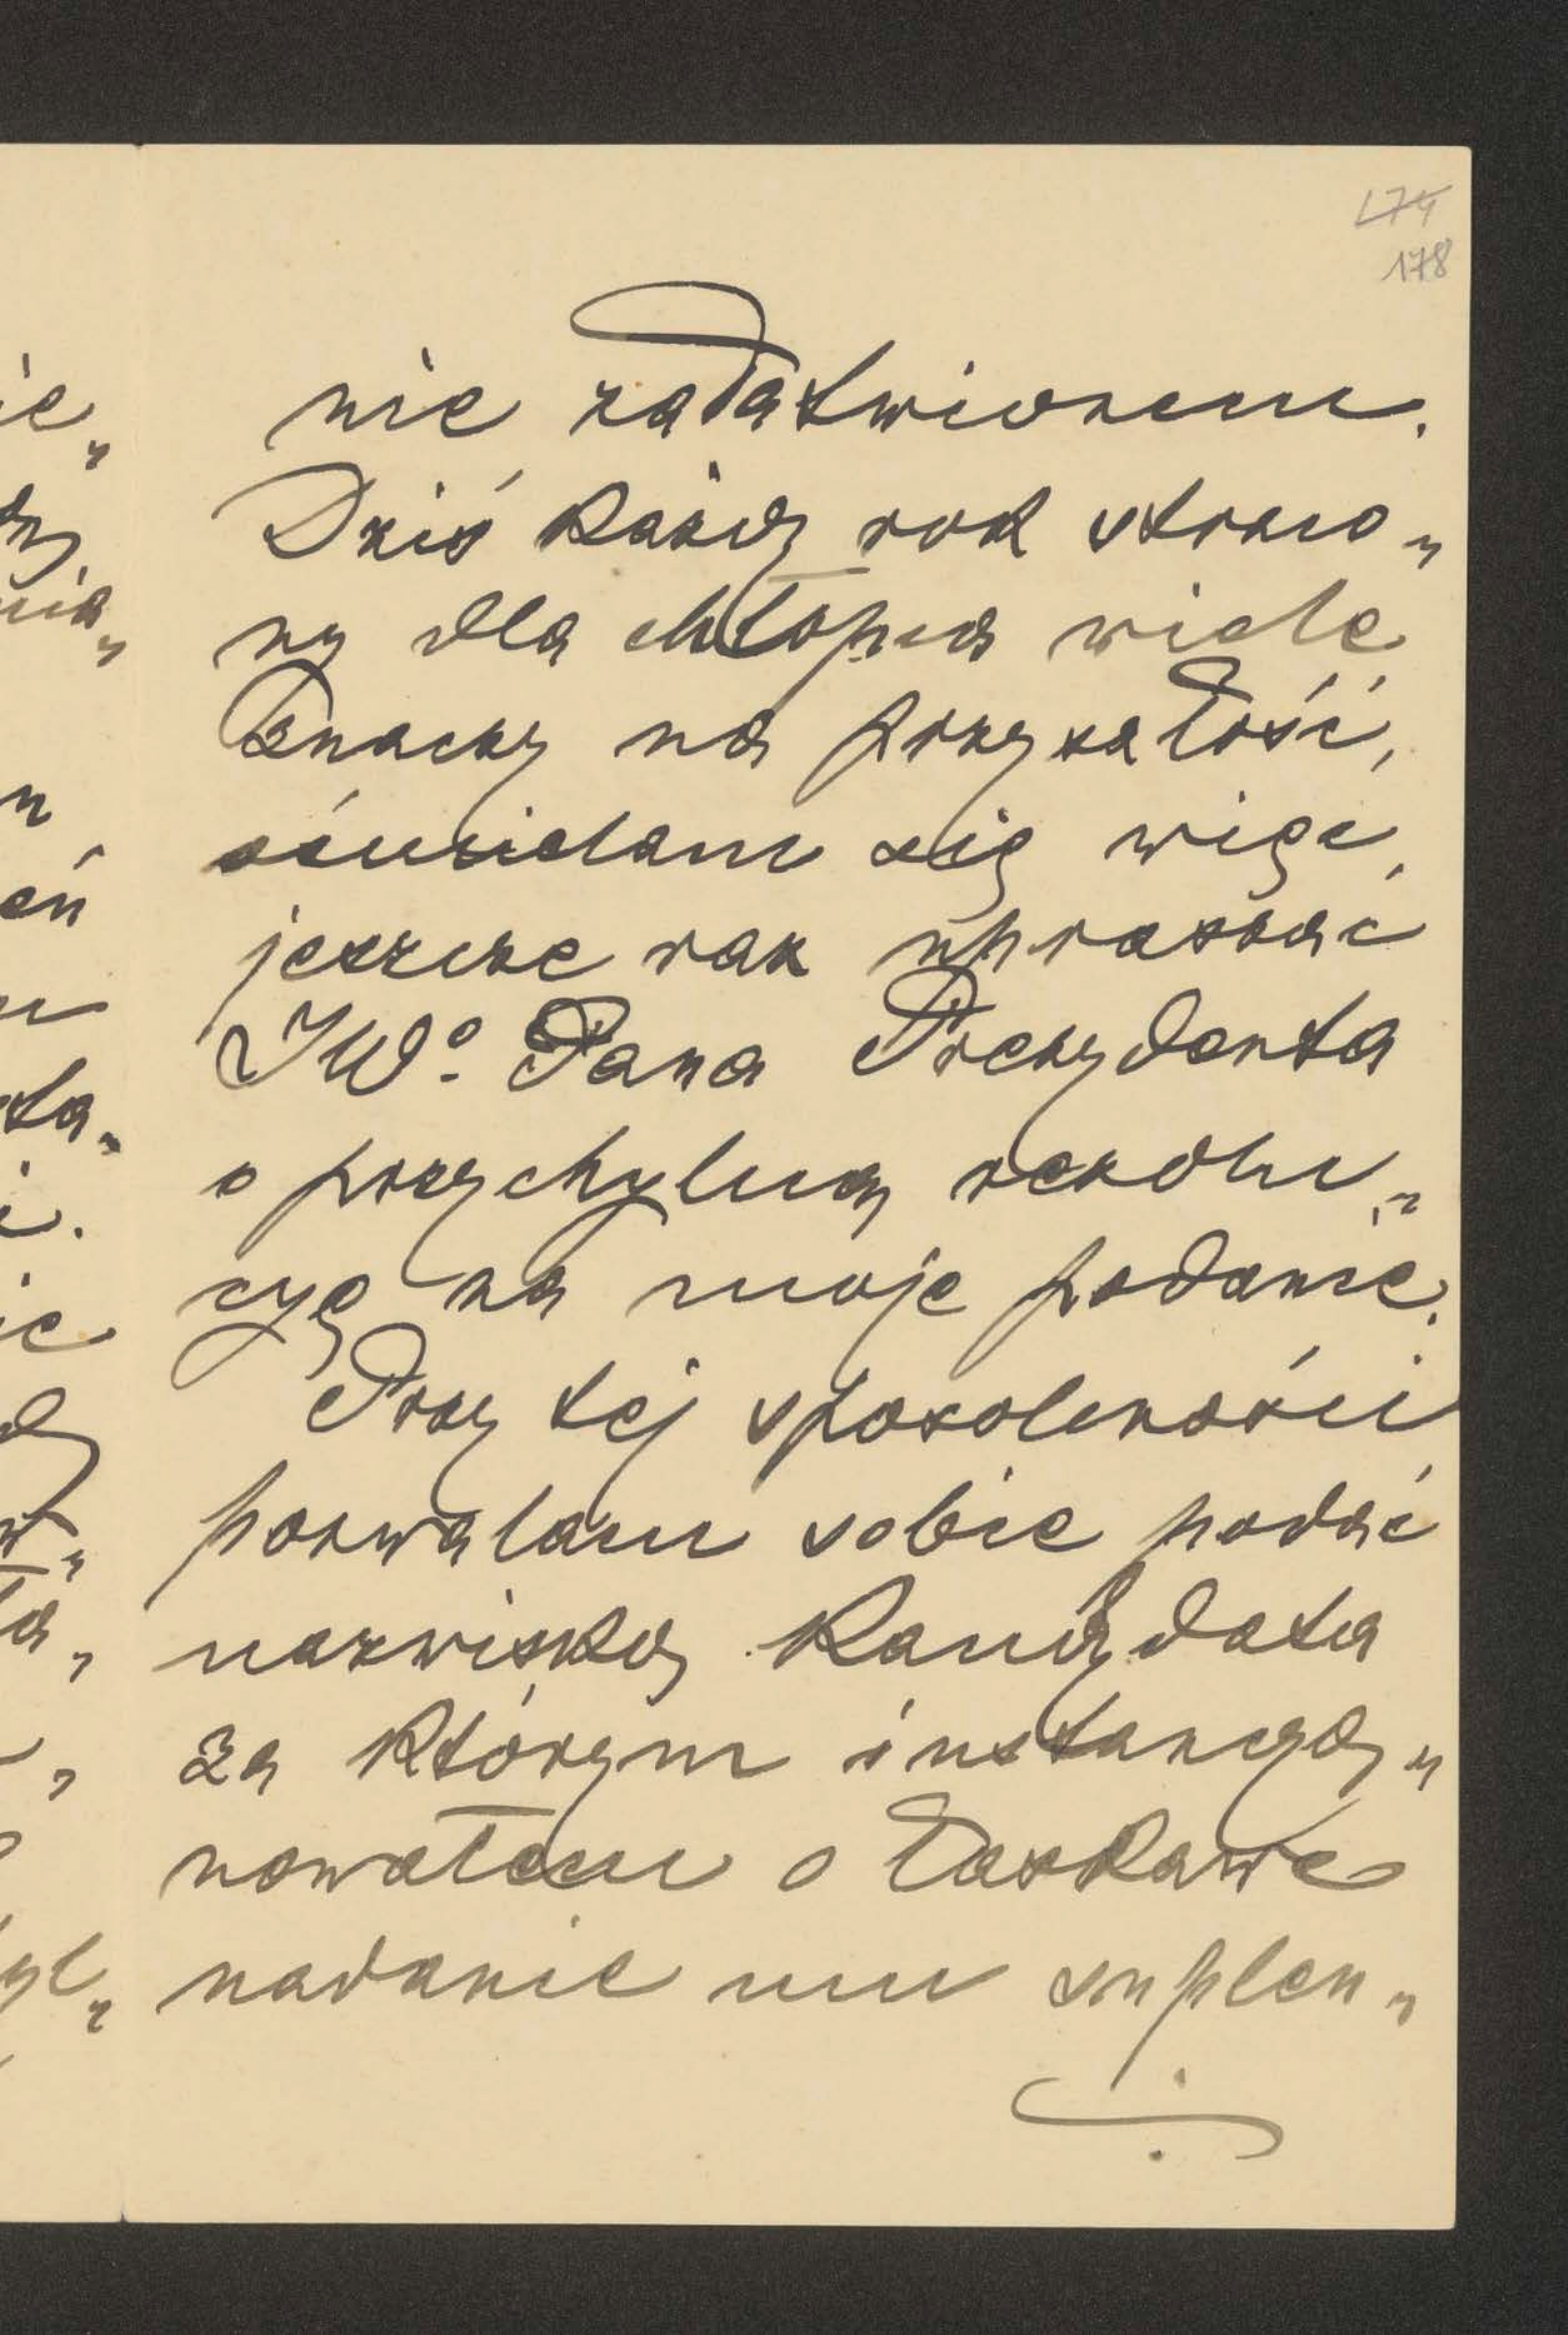 174
178
nie załatwionem.
Dziś każdy rok straco„
ny dla chłopca wiele
znaczy na przyszłość,
ośmielam się więc
jeszcze raz upraszać
JWº. Pana Prezydenta
o przychylną rezolu„
cyę na moje podanie.
Przy tej sposobności
pozwalam sobie podać
nazwisko kandydata
za którym instancyo„
nowałem o łaskawe
nadanie mu suplen„